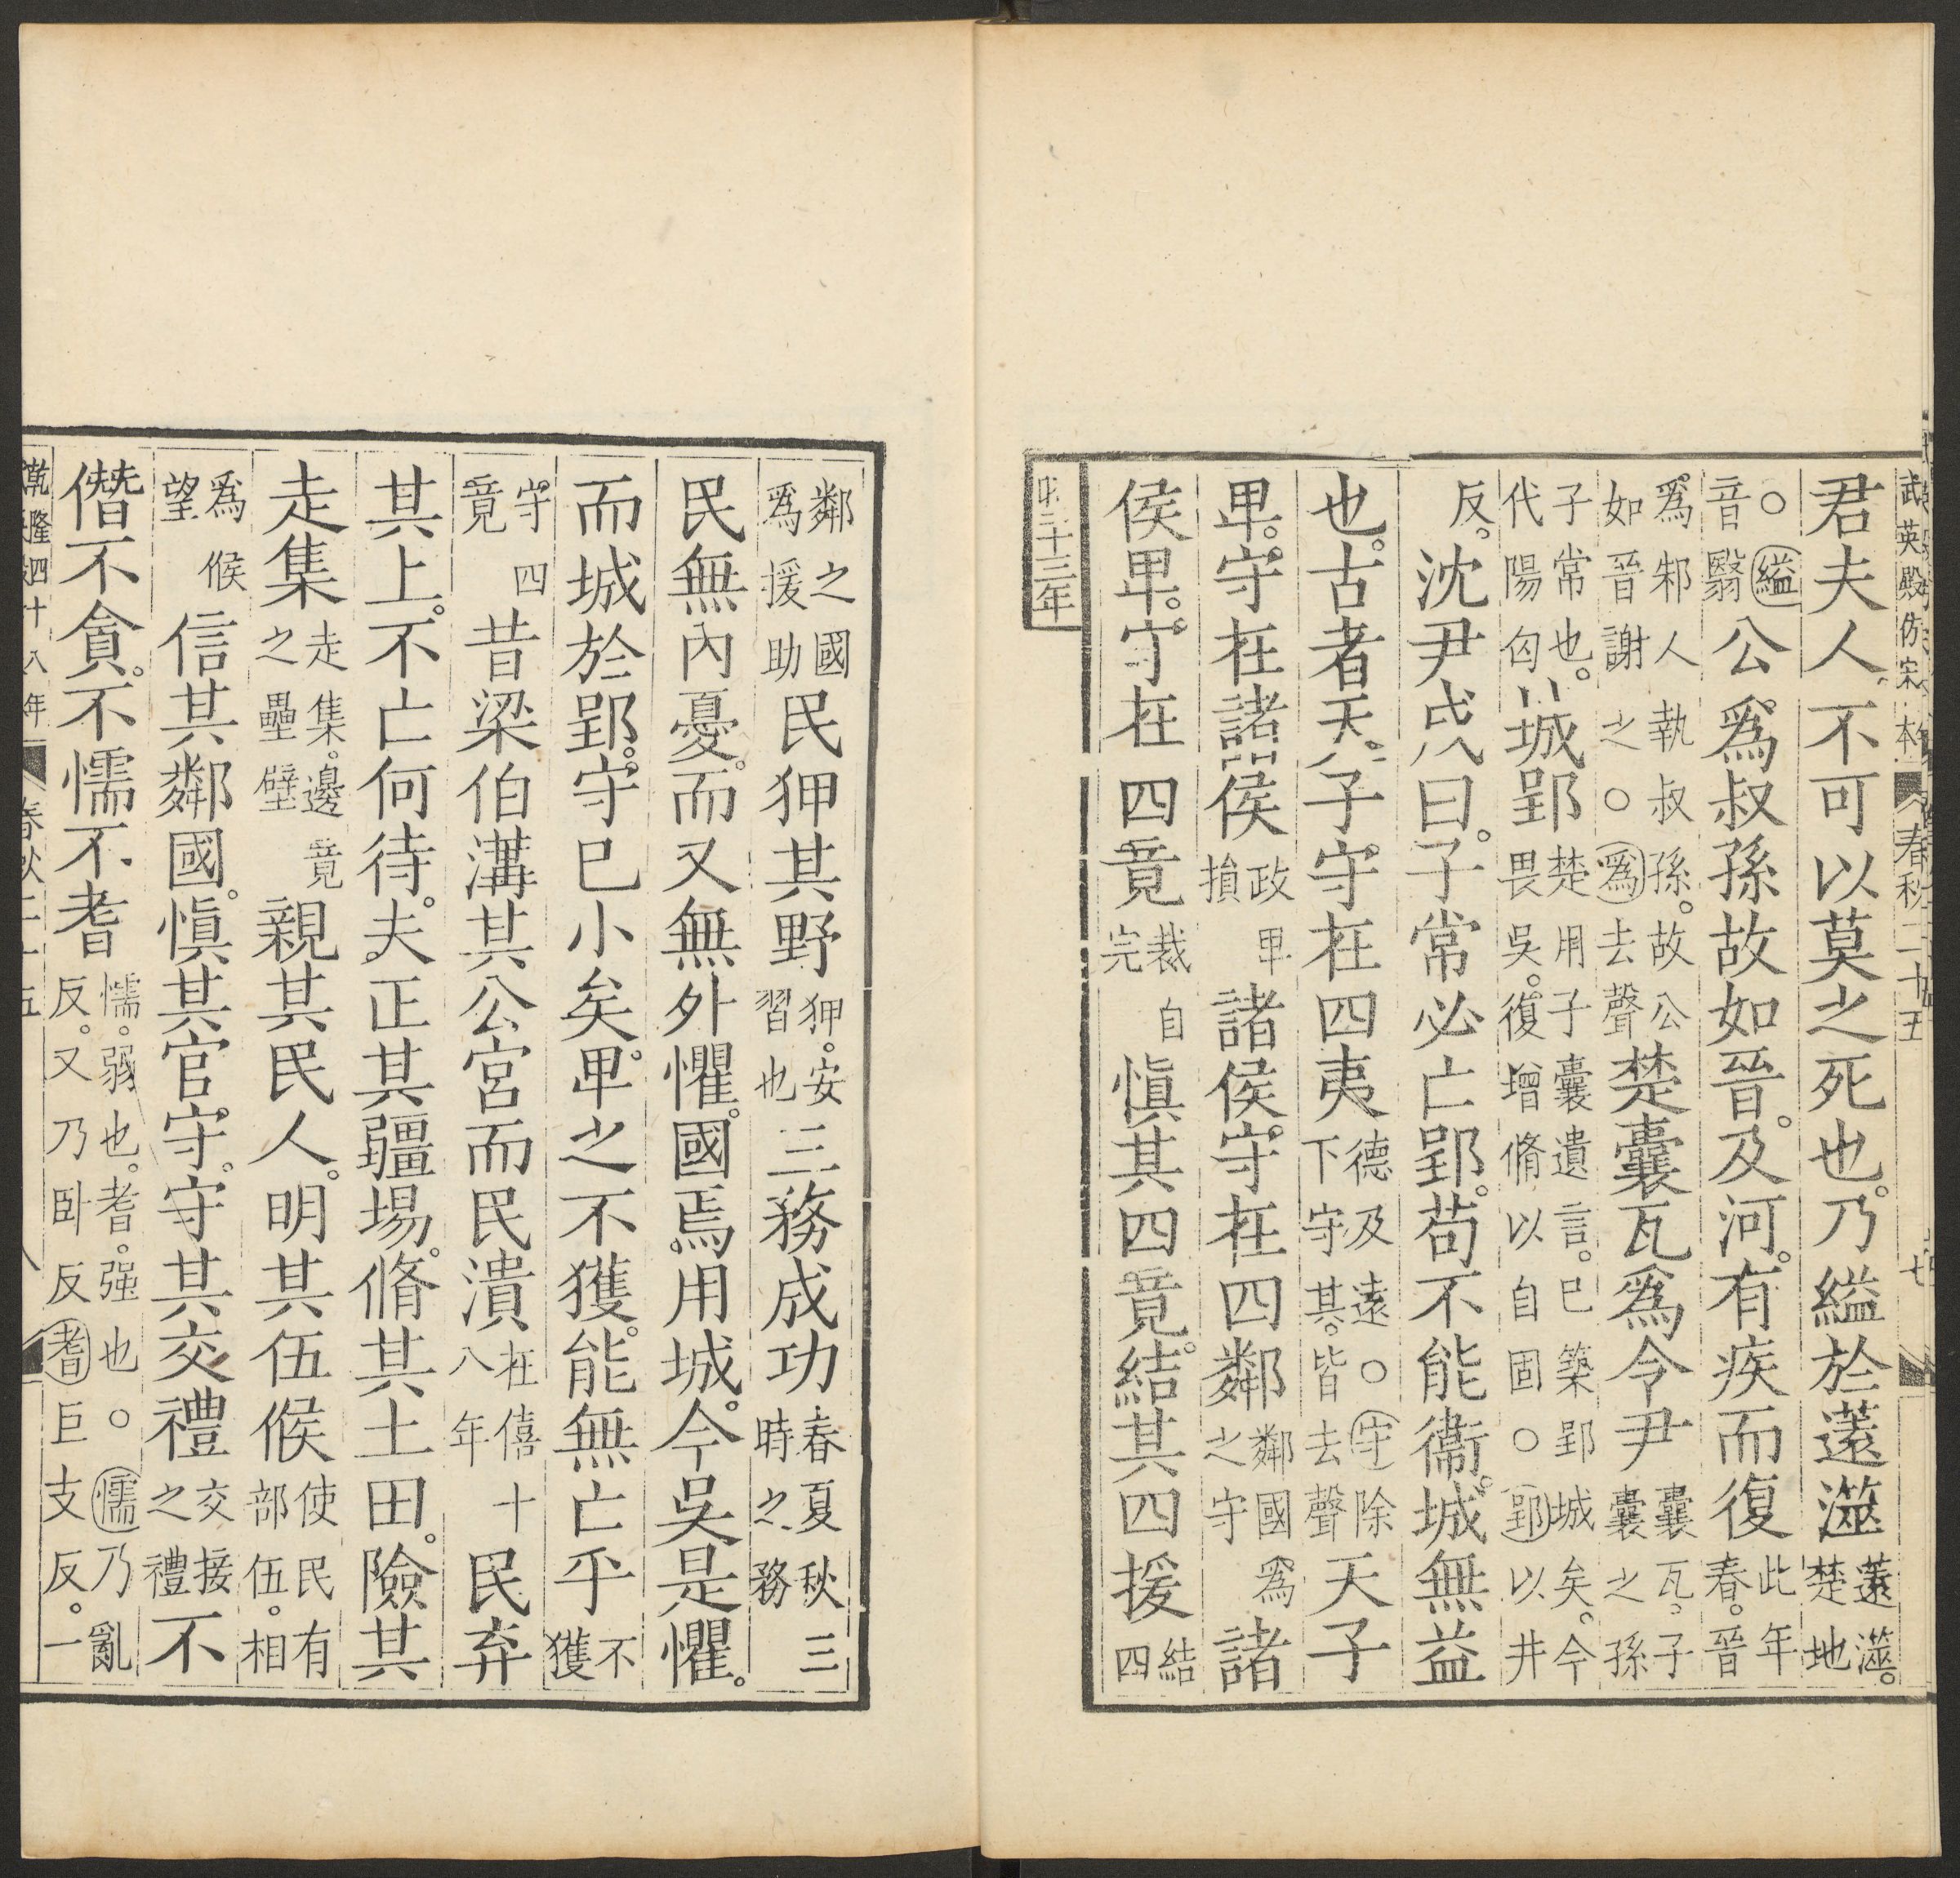 武英殿仿宋本 春秋二十五 七
君夫人。不可以莫之死也。乃縊於薳澨薳澨。楚地
○縊音翳公爲叔孫故如晉。及河。有疾而復此年春。晉
爲邾人執叔孫。故公如晉謝之○爲去聲楚囊瓦爲令尹囊瓦。子囊之孫
子常也。代陽匄城郢楚用子囊遺言。已築郢城矣。今畏吳。復增脩以自固○郢以井
反。沈尹戌曰。子常必亡郢。苟不能衞。城無益
也。古者天子守在四夷德及遠○守除下守其。皆去聲天子
卑。守在諸侯政卑損諸侯守在四鄰鄰國爲之守諸
侯卑。守在四竟裁自完愼其四竟。結其四援結四
昭二十三年
鄰之國爲援助民狎其野狎。安習也三務成功春夏秋三時之務
民無內憂。而又無外懼。國焉用城。今吳是懼。
而城於郢。守已小矣。卑之不獲。能無亡乎不獲
守四竟昔梁伯溝其公宮而民潰在僖十八年民弃
其上。不亡何待。夫正其疆埸。脩其土田。險其
走集走集。邊竟之壘壁親其民人。明其伍候使民有部伍。相
爲候望信其鄰國。愼其官守。守其交禮交接之禮不
僭不貪。不懦不耆懦。弱也。耆。强也○懦乃亂反。又乃卧反耆巨支反。一
乾隆四十八年 春秋二十五